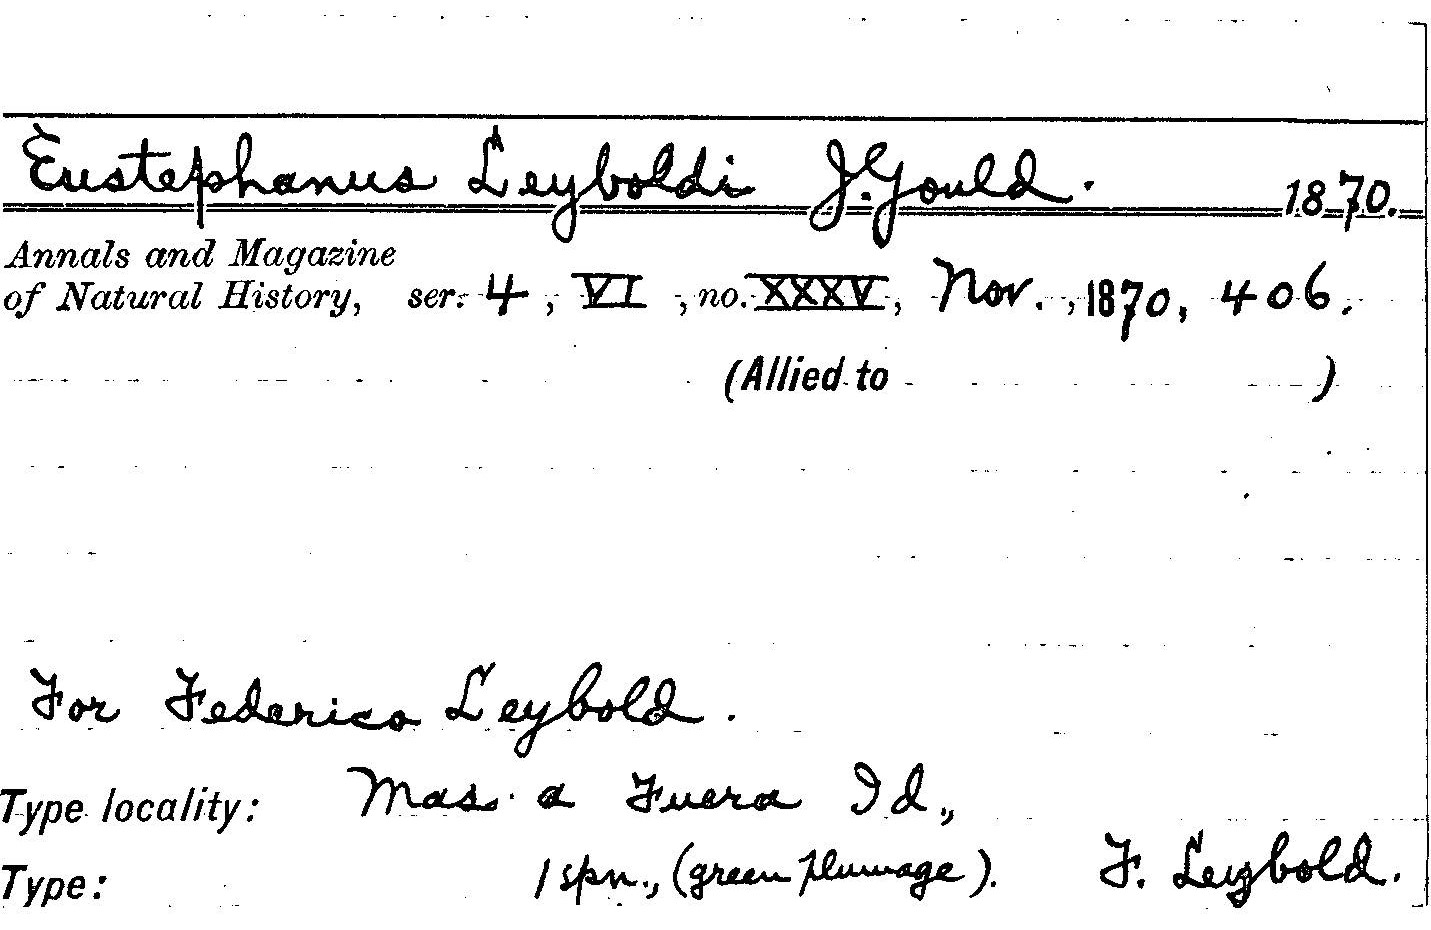 Eustephanus Leyboldi J. Gould. 1870.
Annals and Magazine
of Natural History, ser. 4, VI, no. XXXV, Nov., 1870, 406.
(Allied to )
For Federico Leybold.
Type locality: Mas a Fuera Id.,
Type: 1 spn., (green plumage). F. Leybold.